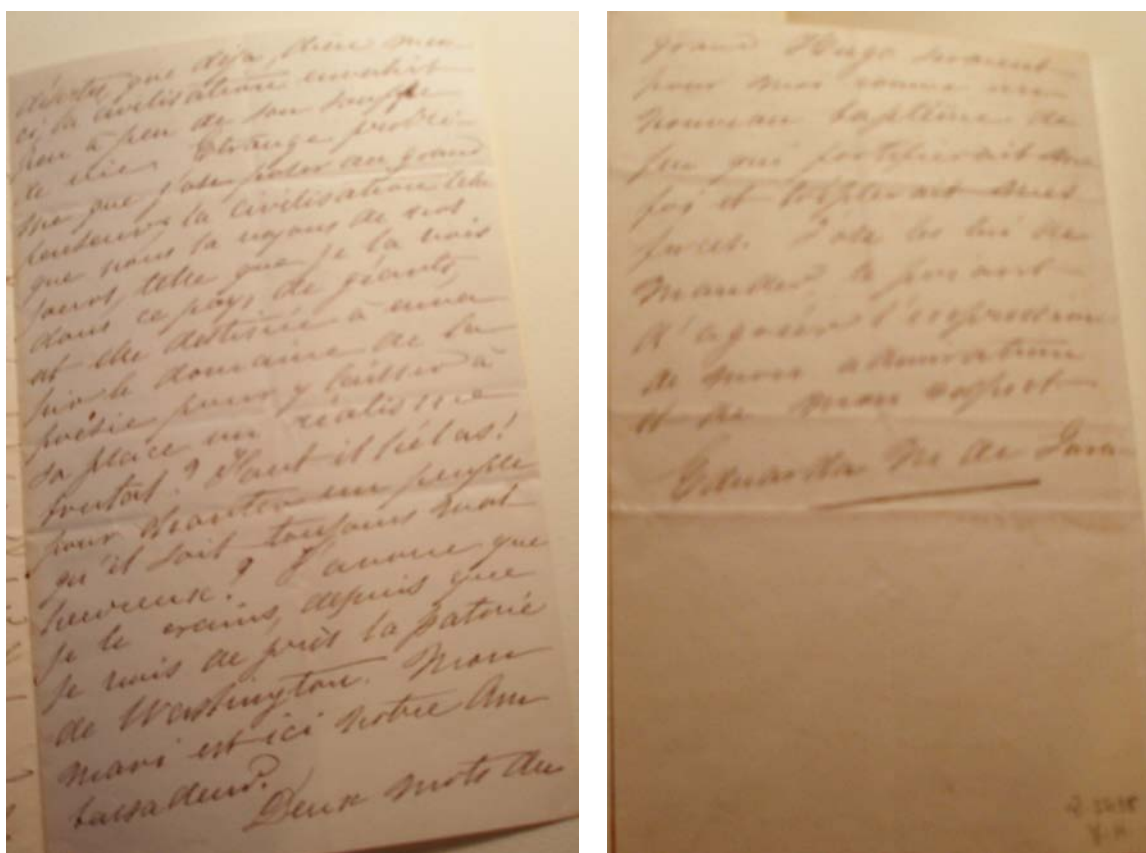 déserts que déja, Dieu mer-
ci la civilisation envahit
peu à peu de son souffle
de vie. Étrange problè-
me que j'ose poser au grand
penseur: la civilisation telle
que nous la voyons de nos
jours, telle que je la vois
dans ce pays de géants,
est elle destinée à enva
hir le domaine de la
poésie pour y laisser à
sa place un réalisme
brutal? Faut il hélas!
pour chanter un peuple
qu'il soit toujours mal
heureux? J'avoue que
je le crains, depuis que
je vois de près la patrie
de Washington. Mon
mari est ici notre Am
bassadeur.
Deux mots du
grand Hugo seraient
pour moi comme un
nouveau baptême de
feu qui fortifierait ma
foi et mes
forces. J'ose les lui de
mander le priant
d'agréer l'expression
de mon admiration
et de mon respect
Eduarda M de Garcia